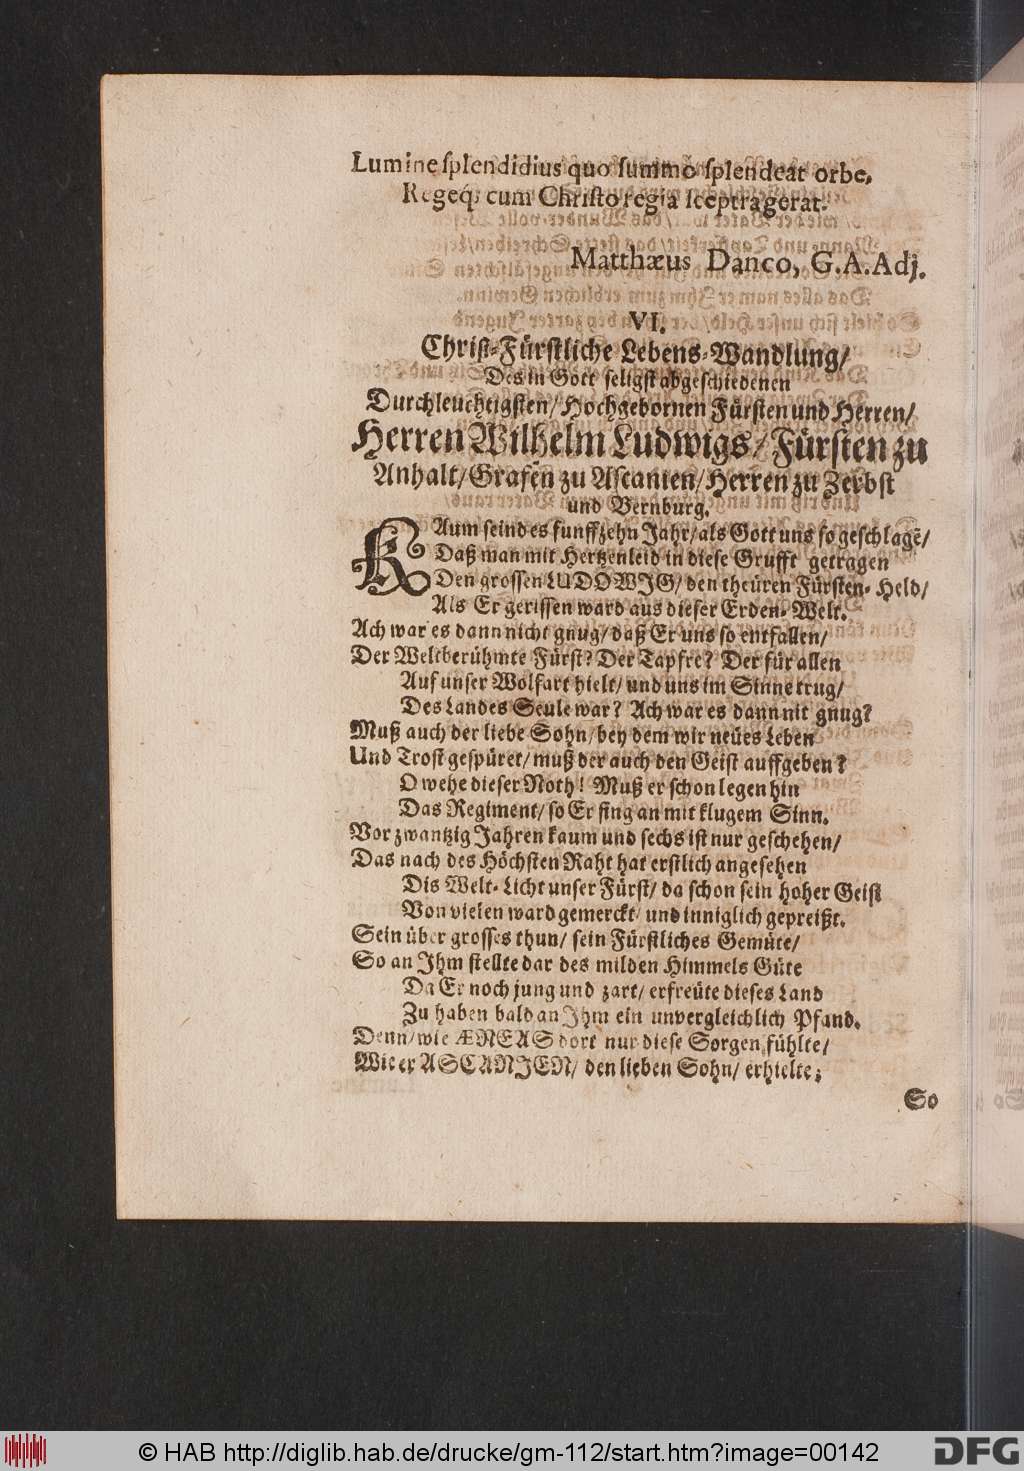 Lumine ſplendidius quo ſummo ſplendeat orbe,
Regeq́; cum Chriſto regia ſceptra gerat.
Matthæus Danco, G. A. Adj.
VI.
Chriſt-Fürſtliche Lebens-Wandlung/
Des in Gott ſeligſt abgeſchiedenen
Durchleuchtigſten/ Hochgebornen Fürſten und Herren/
Herren Wilhelm Ludwigs/ Fürſten zu
Anhalt/ Grafen zu Aſcanien/ Herren zu Zerbſt
und Bernburg.
KAum ſeind es funffzehn Jahr/ als Gott uns ſo geſchlagẽ/
Daß man mit Hertzenleid in dieſe Grufft getragen
Den groſſen LUDOWIG/ den theüren Fürſten-Held/
Als Er geriſſen ward aus dieſer Erden-Welt.
Ach war es dann nicht gnug/ daß Er uns ſo entfallen/
Der Weltberühmte Fürſt? Der Tapfre? Der für allen
Auf unſer Wolfart hielt/ und uns im Sinne trug/
Des Landes Seule war? Ach war es dann nit gnug?
Muß auch der liebe Sohn/ bey dem wir neües Leben
Und Troſt geſpüret/ muß der auch den Geiſt auffgeben?
O wehe dieſer Noth! Muß er ſchon legen hin
Das Regiment/ ſo Er fing an mit klugem Sinn.
Vor zwantzig Jahren kaum und ſechs iſt nur geſchehen/
Das nach des Höchſten Raht hat erſtlich angeſehen
Dis Welt-Licht unſer Fürſt/ da ſchon ſein hoher Geiſt
Von vielen ward gemerckt/ und inniglich gepreißt.
Sein über groſſes thun/ ſein Fürſtliches Gemüte/
So an Ihm ſtellte dar des milden Himmels Güte
Da Er noch jung und zart/ erfreüte dieſes Land
Zu haben bald an Ihm ein unvergleichlich Pfand.
Denn/ wie ÆNEAS dort nur dieſe Sorgen fühlte/
Wie er ASCANIEN/ den lieben Sohn/ erhielte;
So
© HAB http://diglib.hab.de/drucke/gm-112/start.htm?image=00142
DFG